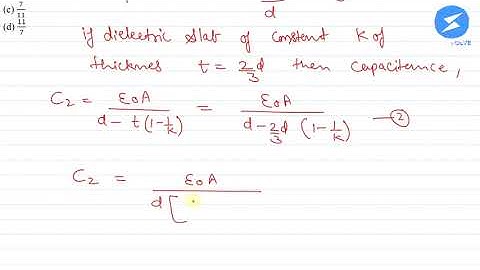 (c) 7/11
(d) 11/7
d
if dielectric slab of constant K of
thicknes t = 2/3 d then capacitance,
C₂ = ε₀A / d - t(1 - 1/k) = ε₀A / d - 2/3 d (1 - 1/k) — ②
C₂ = ε₀A / d[